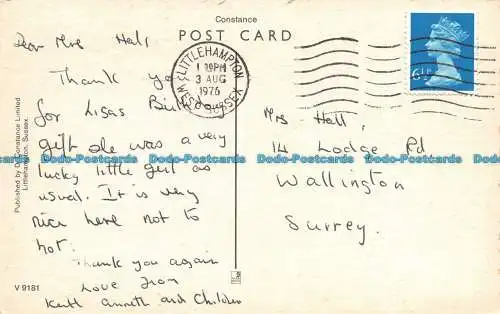 Constance
POST CARD
Dear Mrs Hall,
Thank you
for Lisas Birthday
gift she was a very
lucky little girl as
usual. It is very
nice here not to
hot.
Thank you again
Love from
Keith Anneth and Children
LITTLEHAMPTON
WEST SUSSEX
1 PM
3 AUG
1976
6½P
Mrs Hall,
14 Lodge Rd
Wallington
Surrey.
Published by D. Constance Limited
Littlehampton, Sussex.
V 9181
Dodo-Postcards Dodo-Postcards Dodo-Postcards Dodo-Postcards